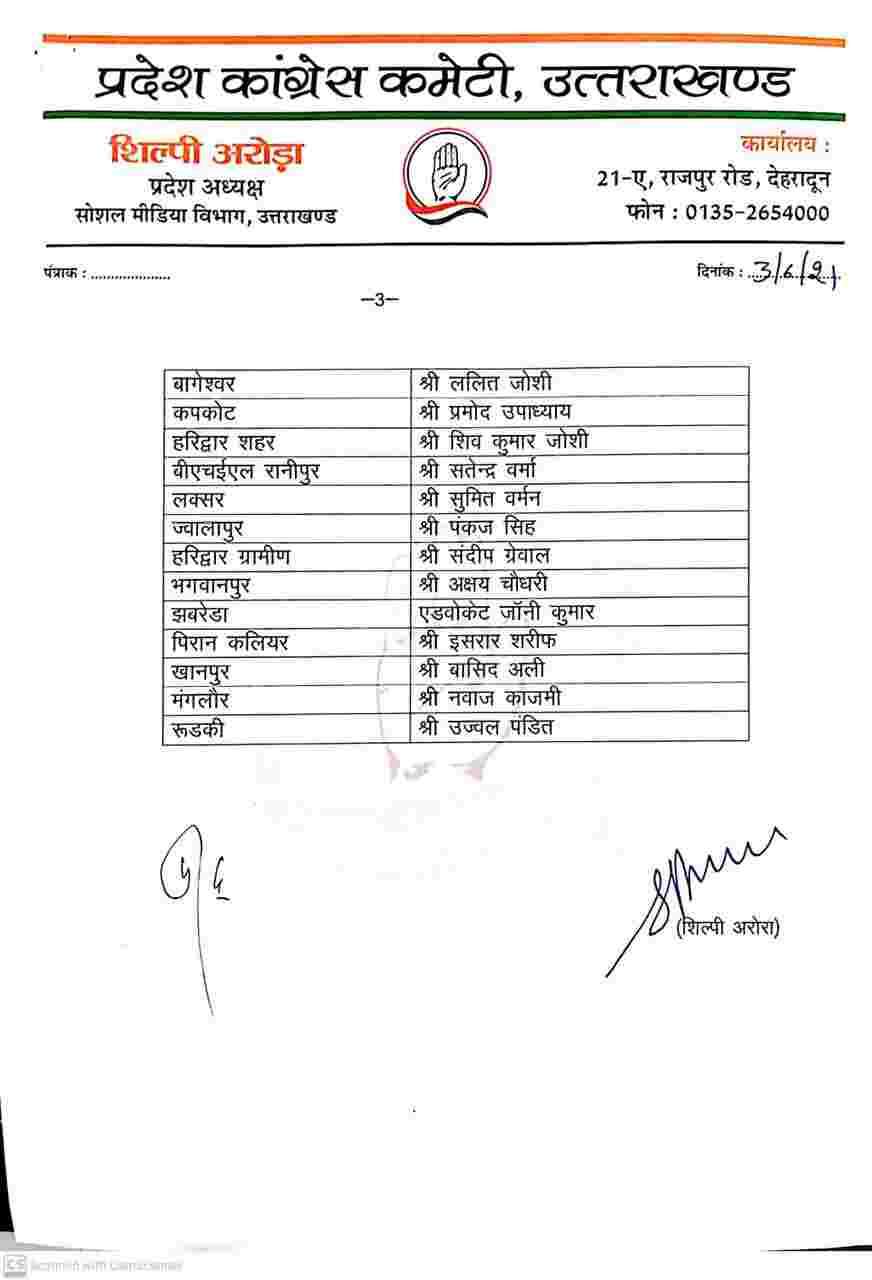 प्रदेश कांग्रेस कमेटी, उत्तराखण्ड
शिल्पी अरोड़ा
प्रदेश अध्यक्ष
सोशल मीडिया विभाग, उत्तराखण्ड
कार्यालय :
21-ए, राजपुर रोड, देहरादून
फोन : 0135-2654000
पंत्राक : .................... दिनांक : 3/6/21
-3-
बागेश्वर श्री ललित जोशी
कपकोट श्री प्रमोद उपाध्याय
हरिद्वार शहर श्री शिव कुमार जोशी
बीएचईएल रानीपुर श्री सतेन्द्र वर्मा
लक्सर श्री सुमित वर्मन
ज्वालापुर श्री पंकज सिह
हरिद्वार ग्रामीण श्री संदीप ग्रेवाल
भगवानपुर श्री अक्षय चौधरी
झबरेडा एडवोकेट जॉनी कुमार
पिरान कलियर श्री इसरार शरीफ
खानपुर श्री बासिद अली
मंगलौर श्री नवाज काजमी
रूडकी श्री उज्वल पंडित
(शिल्पी अरोरा)
CS Scanned with CamScanner